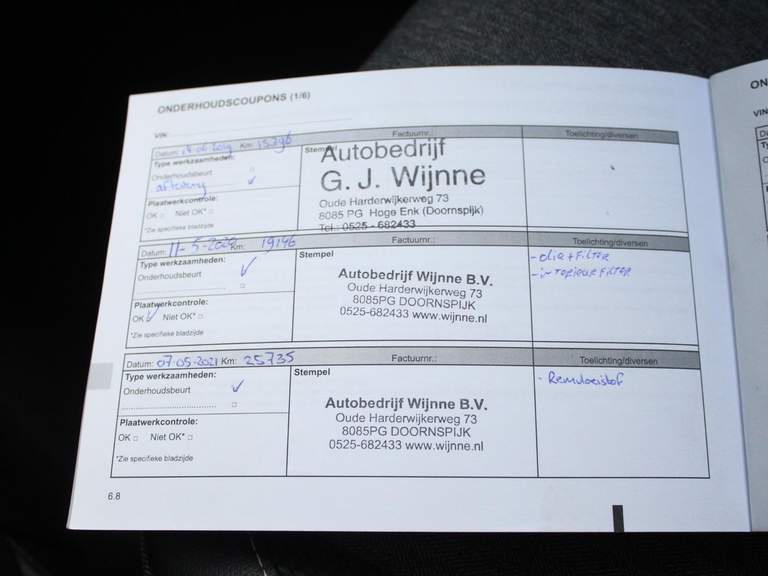 ONDERHOUDSCOUPONS (1/6)
VIN:
Datum: Km: 15296 Factuurnr.: Toelichting/diversen
Type werkzaamheden:
Stempel
Onderhoudsbeurt □
aflevering ✓
Plaatwerkcontrole:
OK □ Niet OK* □
*Zie specifieke bladzijde
Autobedrijf
G. J. Wijnne
Oude Harderwijkerweg 73
8085 PG Hoge Enk (Doornspijk)
Tel.: 0525 - 682433
Datum: 11-5-2020 Km: 19196 Factuurnr.: Toelichting/diversen
Type werkzaamheden:
Stempel
Onderhoudsbeurt ✓
□
Plaatwerkcontrole:
OK ✓ Niet OK* □
*Zie specifieke bladzijde
Autobedrijf Wijnne B.V.
Oude Harderwijkerweg 73
8085PG DOORNSPIJK
0525-682433 www.wijnne.nl
- olie + FILTER
- interieur FILTER
Datum: 07-05-2021 Km: 25735 Factuurnr.: Toelichting/diversen
Type werkzaamheden:
Stempel
Onderhoudsbeurt ✓
□
Plaatwerkcontrole:
OK □ Niet OK* □
*Zie specifieke bladzijde
Autobedrijf Wijnne B.V.
Oude Harderwijkerweg 73
8085PG DOORNSPIJK
0525-682433 www.wijnne.nl
- Remvloeistof
6.8
ON
VIN